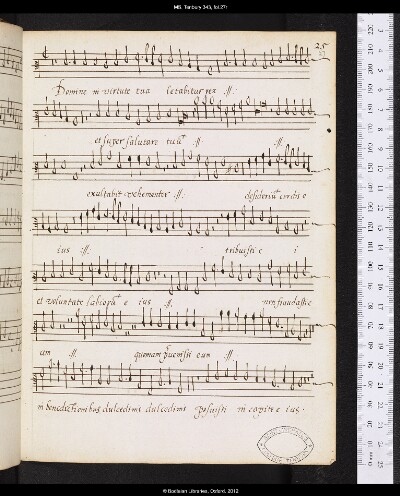 MS. Tenbury 343, fol.27r
25
Domine in virtute tua letabitur rex :||:
et super salutare tuū :||: :||:
exultabit vehementer :||: desideriū cordis e
ius :||: tribuisti e i
et voluntate labiorū e ius :||: non fraudasti e
um :||: quoniam pvenisti eum :||:
in benedictionibus dulcedinis dulcedinis posuisti in capite eius.
© Bodleian Libraries, Oxford, 2012